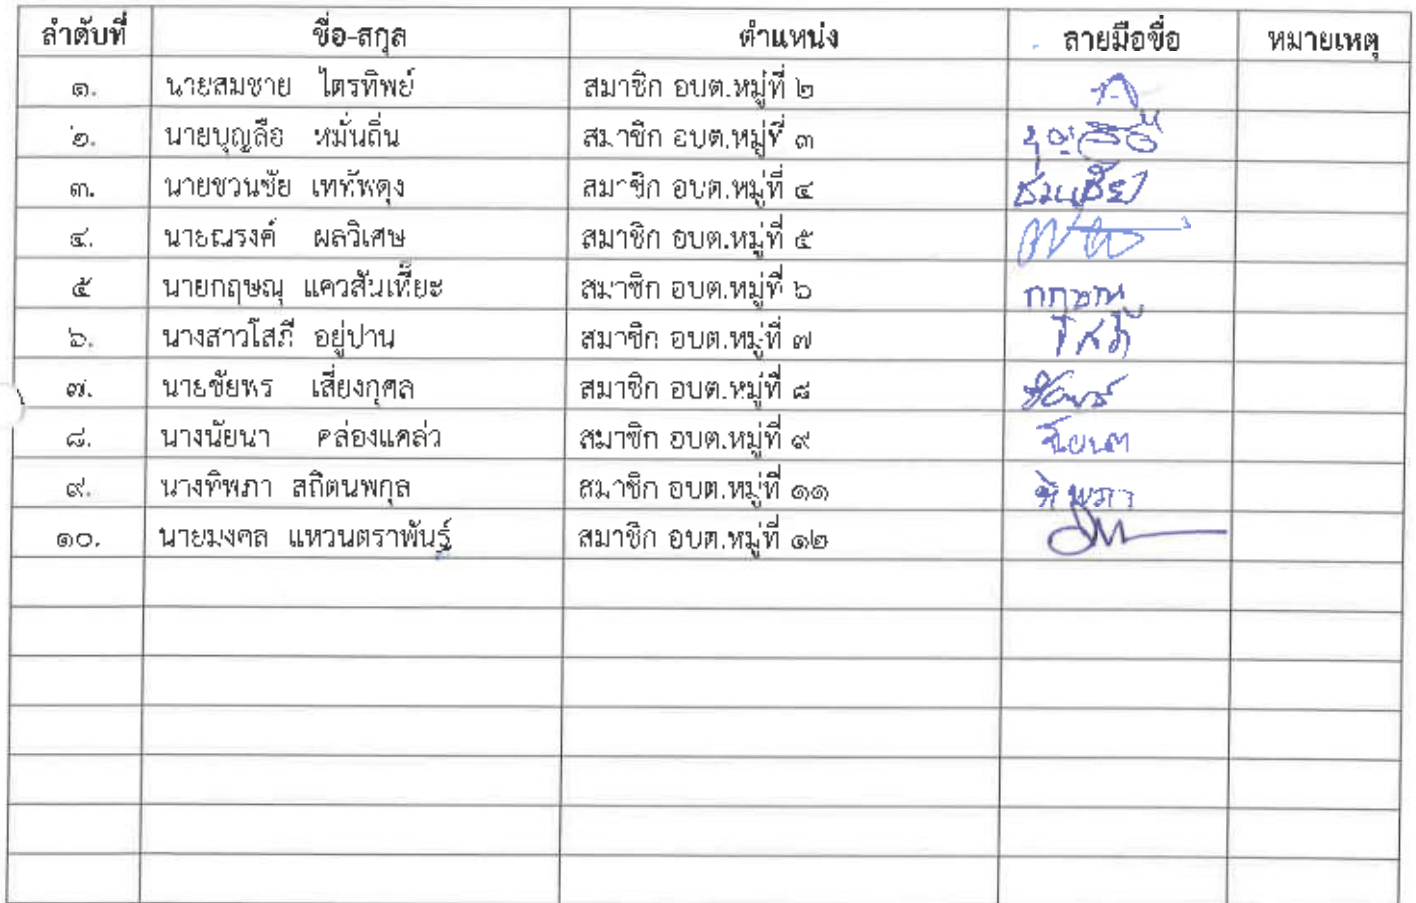 ลำดับที่ ชื่อ-สกุล ตำแหน่ง ลายมือชื่อ หมายเหตุ
๑. นายสมชาย ไตรทิพย์ สมาชิก อบต.หมู่ที่ ๒
๒. นายบุญลือ หมั่นถิ่น สมาชิก อบต.หมู่ที่ ๓ บุญลือ
๓. นายชวนชัย เททัพดุง สมาชิก อบต.หมู่ที่ ๔ ชวนชัย
๔. นายณรงค์ ผลวิเศษ สมาชิก อบต.หมู่ที่ ๕
๕ นายกฤษณุ แควสันเทียะ สมาชิก อบต.หมู่ที่ ๖
๖. นางสาวโสภี อยู่ปาน สมาชิก อบต.หมู่ที่ ๗ โสภี
๗. นายชัยพร เสี่ยงกุศล สมาชิก อบต.หมู่ที่ ๘ ชัยพร
๘. นางนัยนา คล่องแคล่ว สมาชิก อบต.หมู่ที่ ๙ นัยนา
๙. นางทิพภา สถิตนพกุล สมาชิก อบต.หมู่ที่ ๑๑ ทิพภา
๑๐. นายมงคล แหวนตราพันธุ์ สมาชิก อบต.หมู่ที่ ๑๒